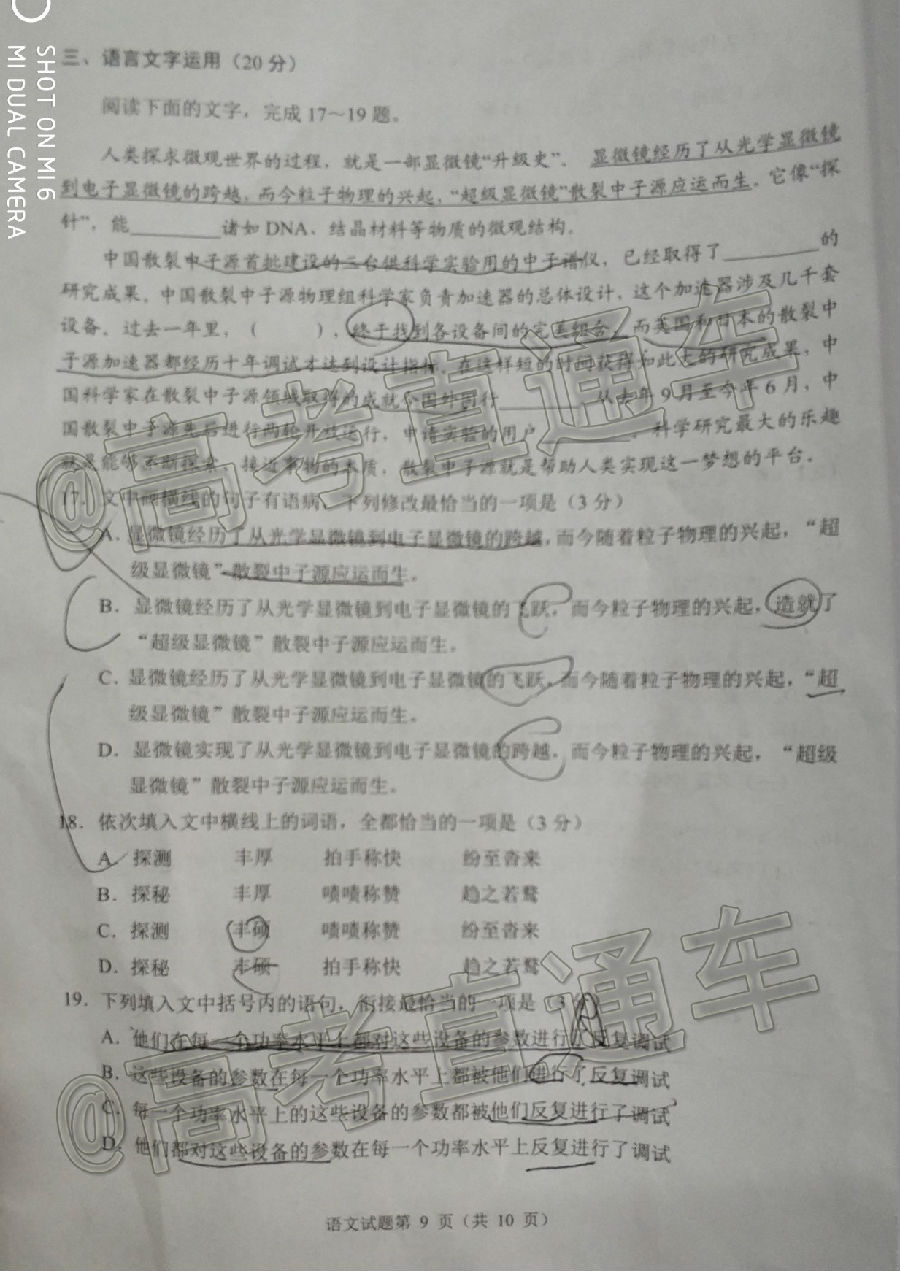 SHOT ON MI 6
MI DUAL CAMERA
三、语言文字运用（20 分）
阅读下面的文字，完成 17～19 题。
人类探求微观世界的过程，就是一部显微镜“升级史”。显微镜经历了从光学显微镜
到电子显微镜的跨越，而今粒子物理的兴起，“超级显微镜”散裂中子源应运而生。它像“探
针”，能________诸如 DNA、结晶材料等物质的微观结构。
中国散裂中子源首批建设的三台供科学实验用的中子谱仪，已经取得了________的
研究成果。中国散裂中子源物理组科学家负责加速器的总体设计，这个加速器涉及几千套
设备。过去一年里，（　　），终于找到各设备间的完美组合。而英国和日本的散裂中
子源加速器都经历十年调试才达到设计指标，在这样短的时间获得如此大的研究成果，中
国科学家在散裂中子源领域取得的成就令国外同行________。从去年 9 月至今年 6 月，中
国散裂中子源先后进行两轮开放运行，申请实验的用户________。科学研究最大的乐趣
就是能够不断探索、接近事物的本质，散裂中子源就是帮助人类实现这一梦想的平台。
17．文中画横线的句子有语病，下列修改最恰当的一项是（3 分）
A．显微镜经历了从光学显微镜到电子显微镜的跨越，而今随着粒子物理的兴起，“超
级显微镜”散裂中子源应运而生。
B．显微镜经历了从光学显微镜到电子显微镜的飞跃，而今粒子物理的兴起，造就了
“超级显微镜”散裂中子源应运而生。
C．显微镜经历了从光学显微镜到电子显微镜的飞跃，而今随着粒子物理的兴起，“超
级显微镜”散裂中子源应运而生。
D．显微镜实现了从光学显微镜到电子显微镜的跨越，而今粒子物理的兴起，“超级
显微镜”散裂中子源应运而生。
18．依次填入文中横线上的词语，全都恰当的一项是（3 分）
A．探测　丰厚　拍手称快　纷至沓来
B．探秘　丰厚　啧啧称赞　趋之若鹜
C．探测　丰硕　啧啧称赞　纷至沓来
D．探秘　丰硕　拍手称快　趋之若鹜
19．下列填入文中括号内的语句，衔接最恰当的一项是（3 分）
A．他们在每一个功率水平上都对这些设备的参数进行了反复调试
B．这些设备的参数在每一个功率水平上都被他们进行了反复调试
C．每一个功率水平上的这些设备的参数都被他们反复进行了调试
D．他们都对这些设备的参数在每一个功率水平上反复进行了调试
语文试题第 9 页（共 10 页）
@高考直通车
@高考直通车